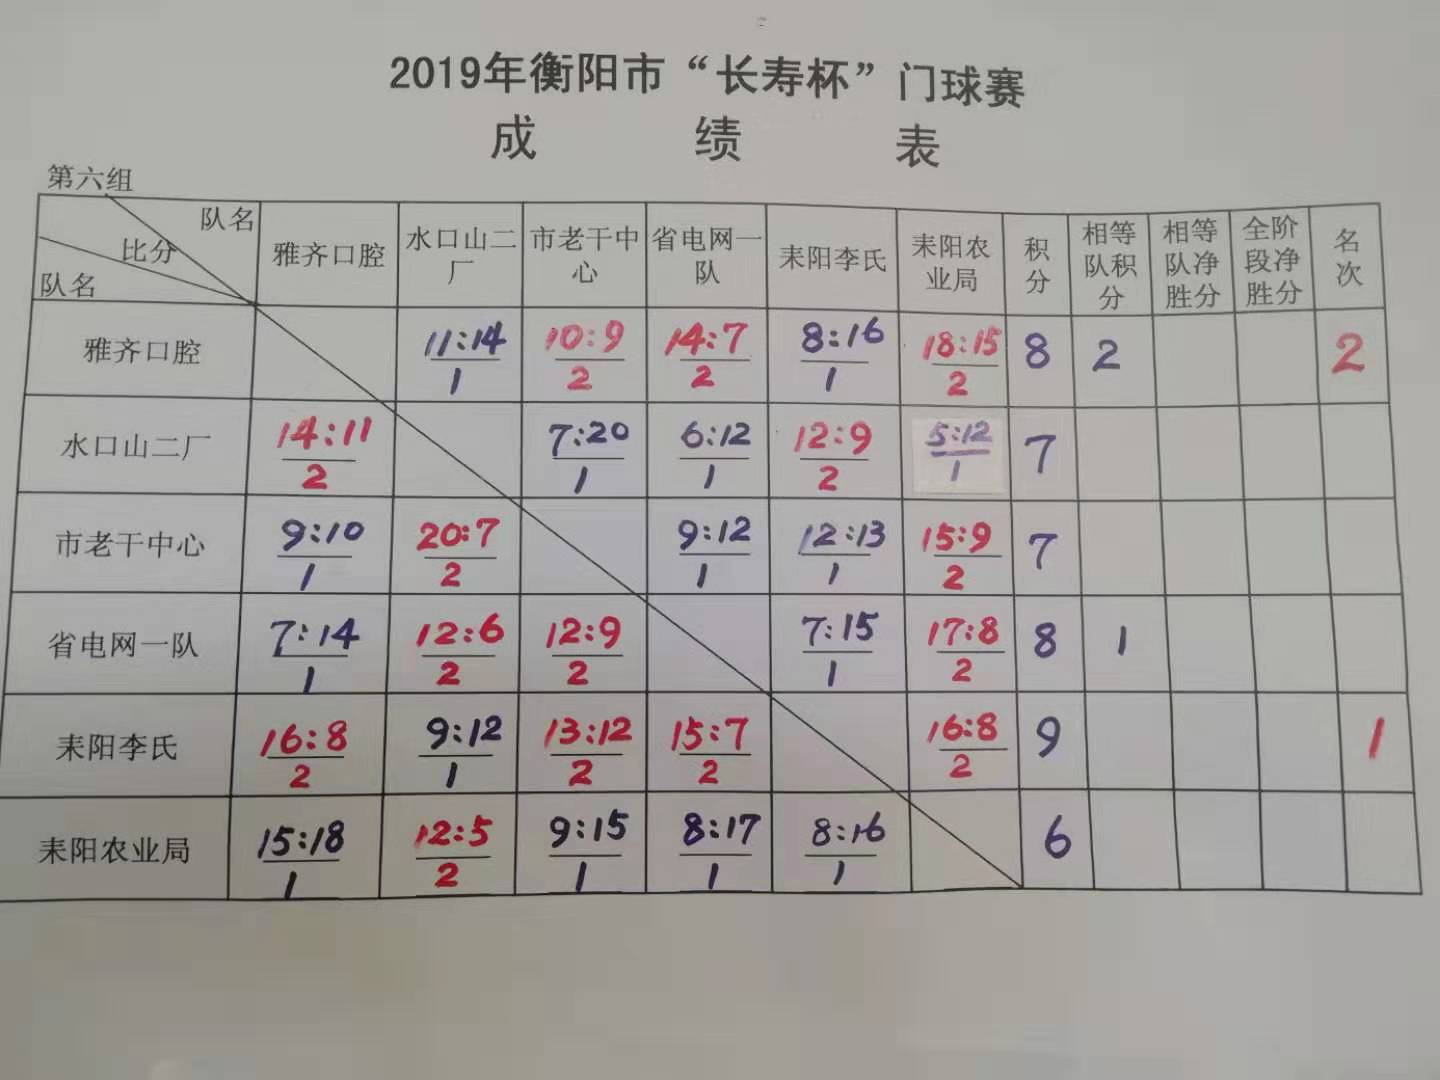 2019年衡阳市“长寿杯”门球赛
成绩表
第六组
队名 比分 队名 雅齐口腔 水口山二厂 市老干中心 省电网一队 耒阳李氏 耒阳农业局 积分 相等队积分 相等队净胜分 全阶段净胜分 名次
雅齐口腔 11:14 1 10:9 2 14:7 2 8:16 1 18:15 2 8 2 2
水口山二厂 14:11 2 7:20 1 6:12 1 12:9 2 5:12 1 7
市老干中心 9:10 1 20:7 2 9:12 1 12:13 1 15:9 2 7
省电网一队 7:14 1 12:6 2 12:9 2 7:15 1 17:8 2 8 1
耒阳李氏 16:8 2 9:12 1 13:12 2 15:7 2 16:8 2 9 1
耒阳农业局 15:18 1 12:5 2 9:15 1 8:17 1 8:16 1 6